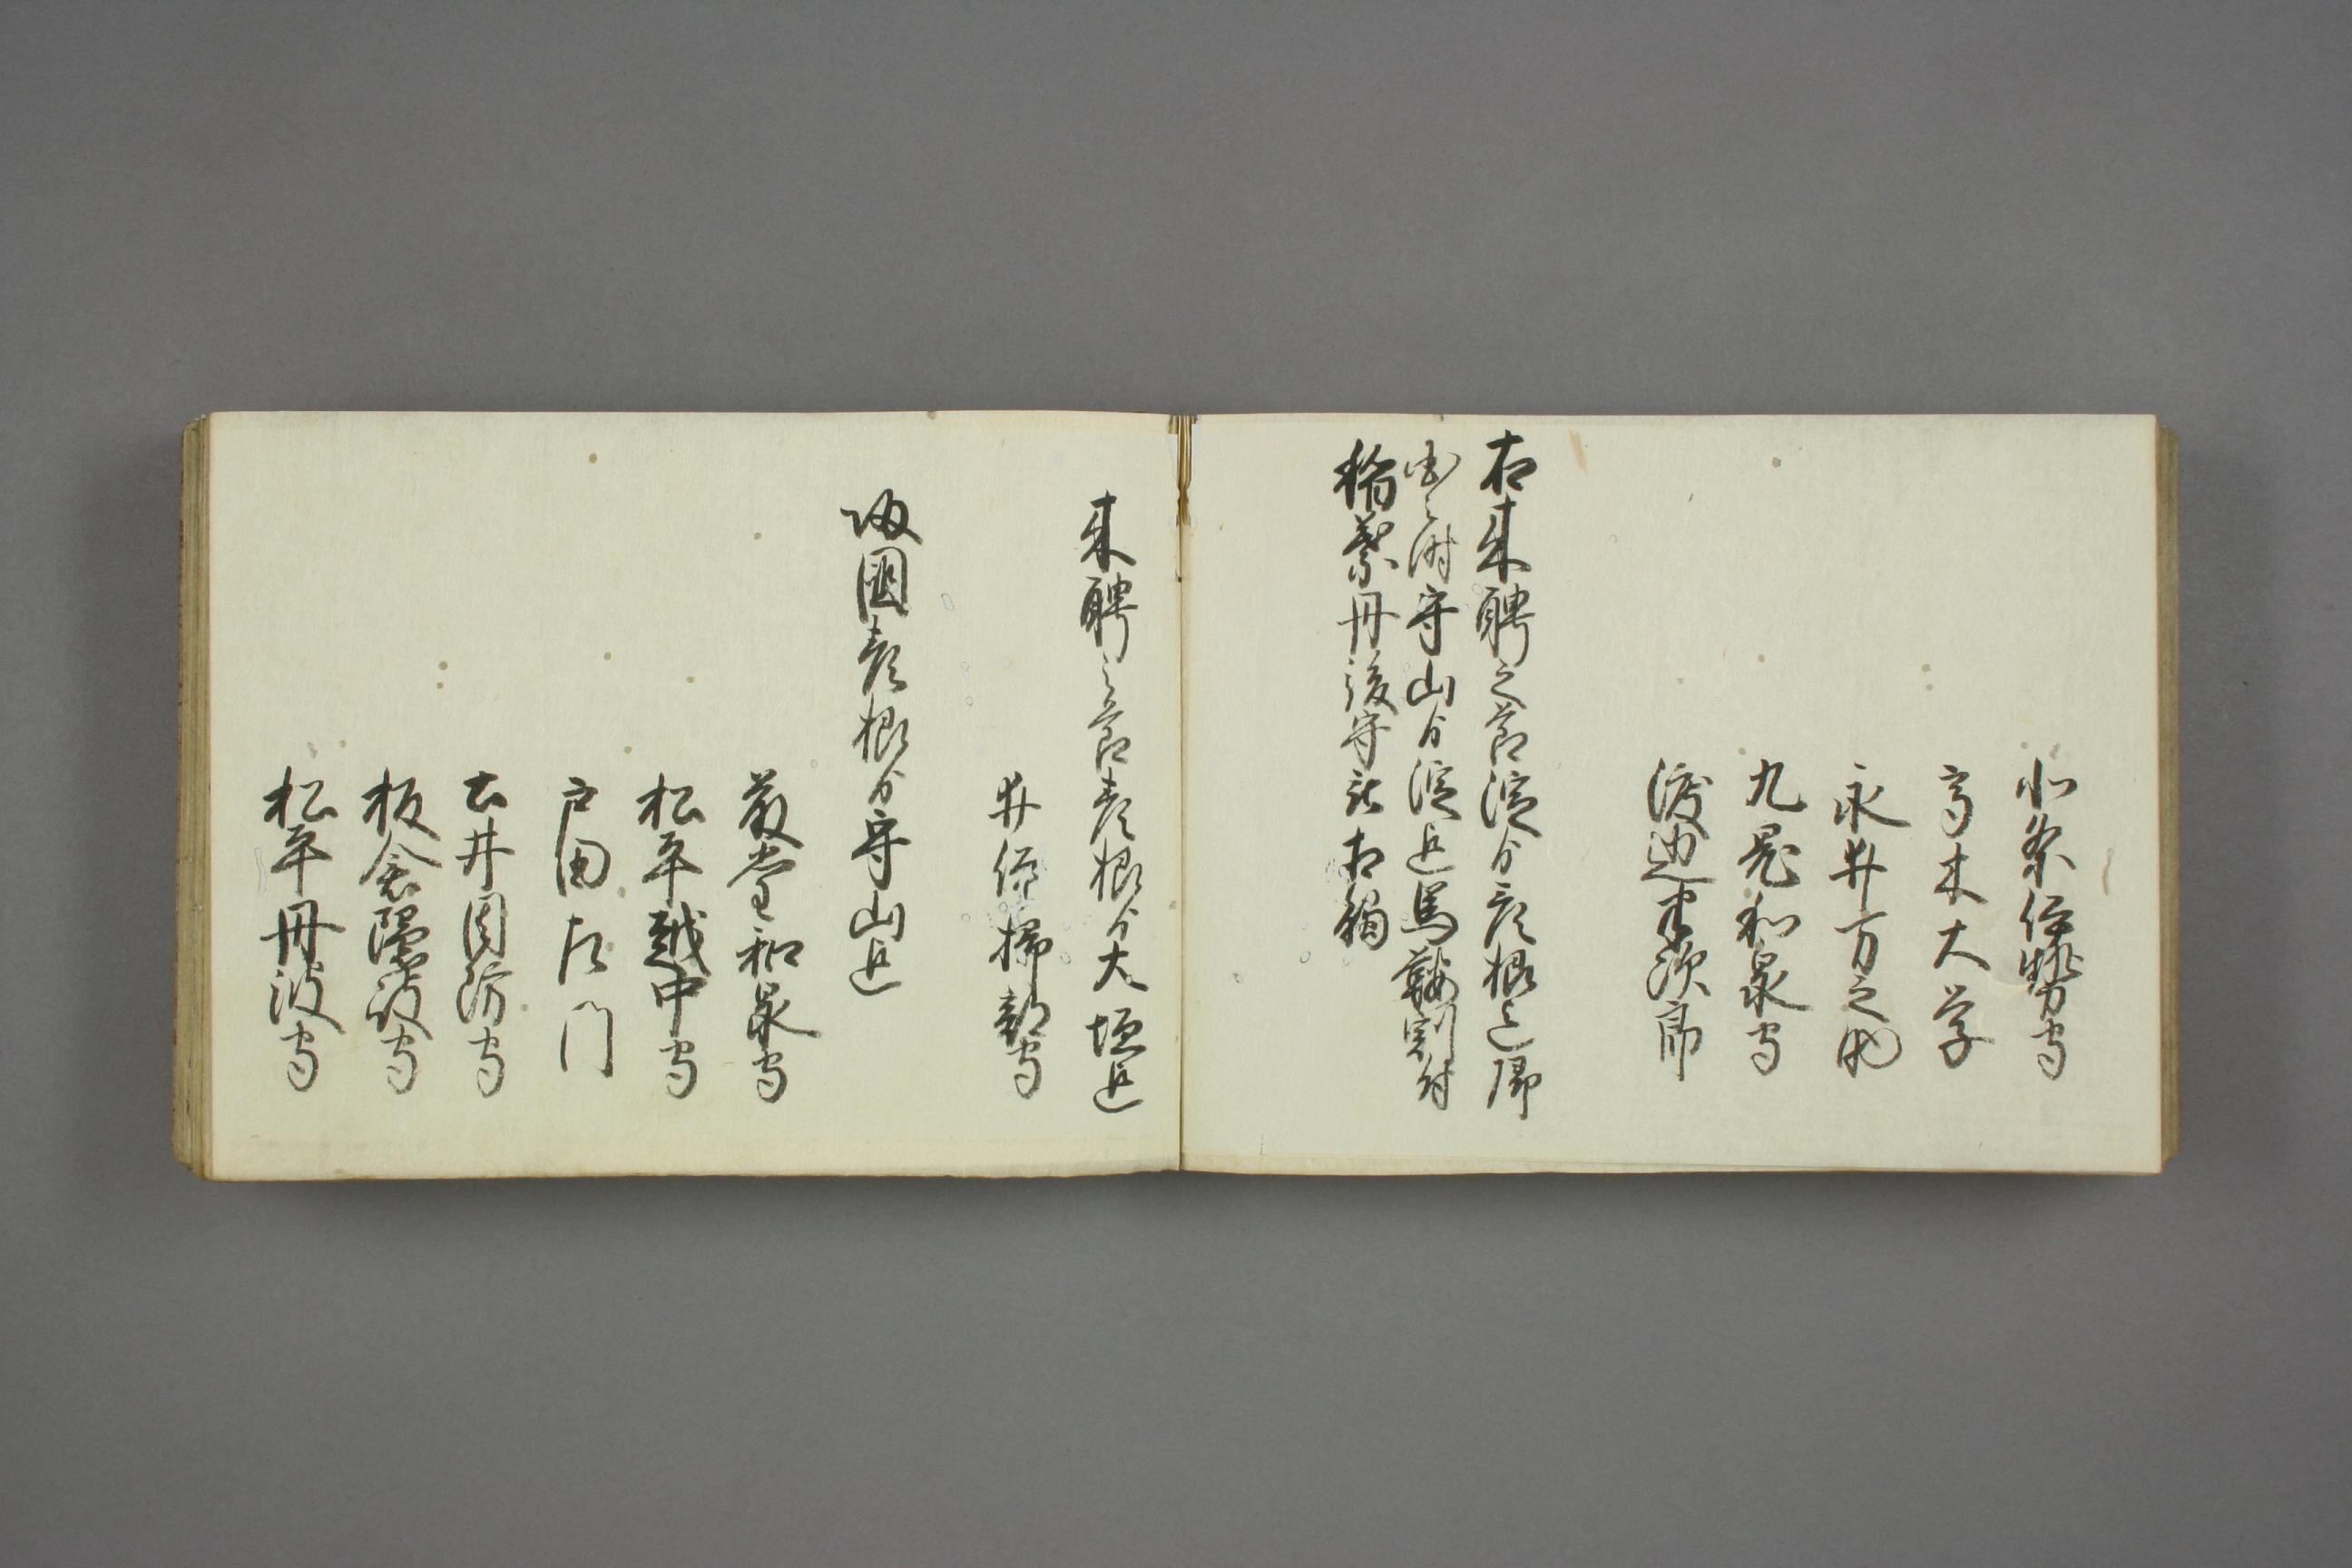 北条伊勢守
高木大学
永井万之助
九鬼和泉守
渡辺半次郎
右来聘之節淀ゟ彦根迄帰
国之時守山ゟ淀迄馬鞍割付
稲葉丹後守江相觸
来聘之節彦根ゟ大垣迄
井伊掃部守
皈國彦根ゟ守山迄
藤堂和泉守
松平越中守
戸田左門
土井周防守
板倉隠岐守
松平丹波守